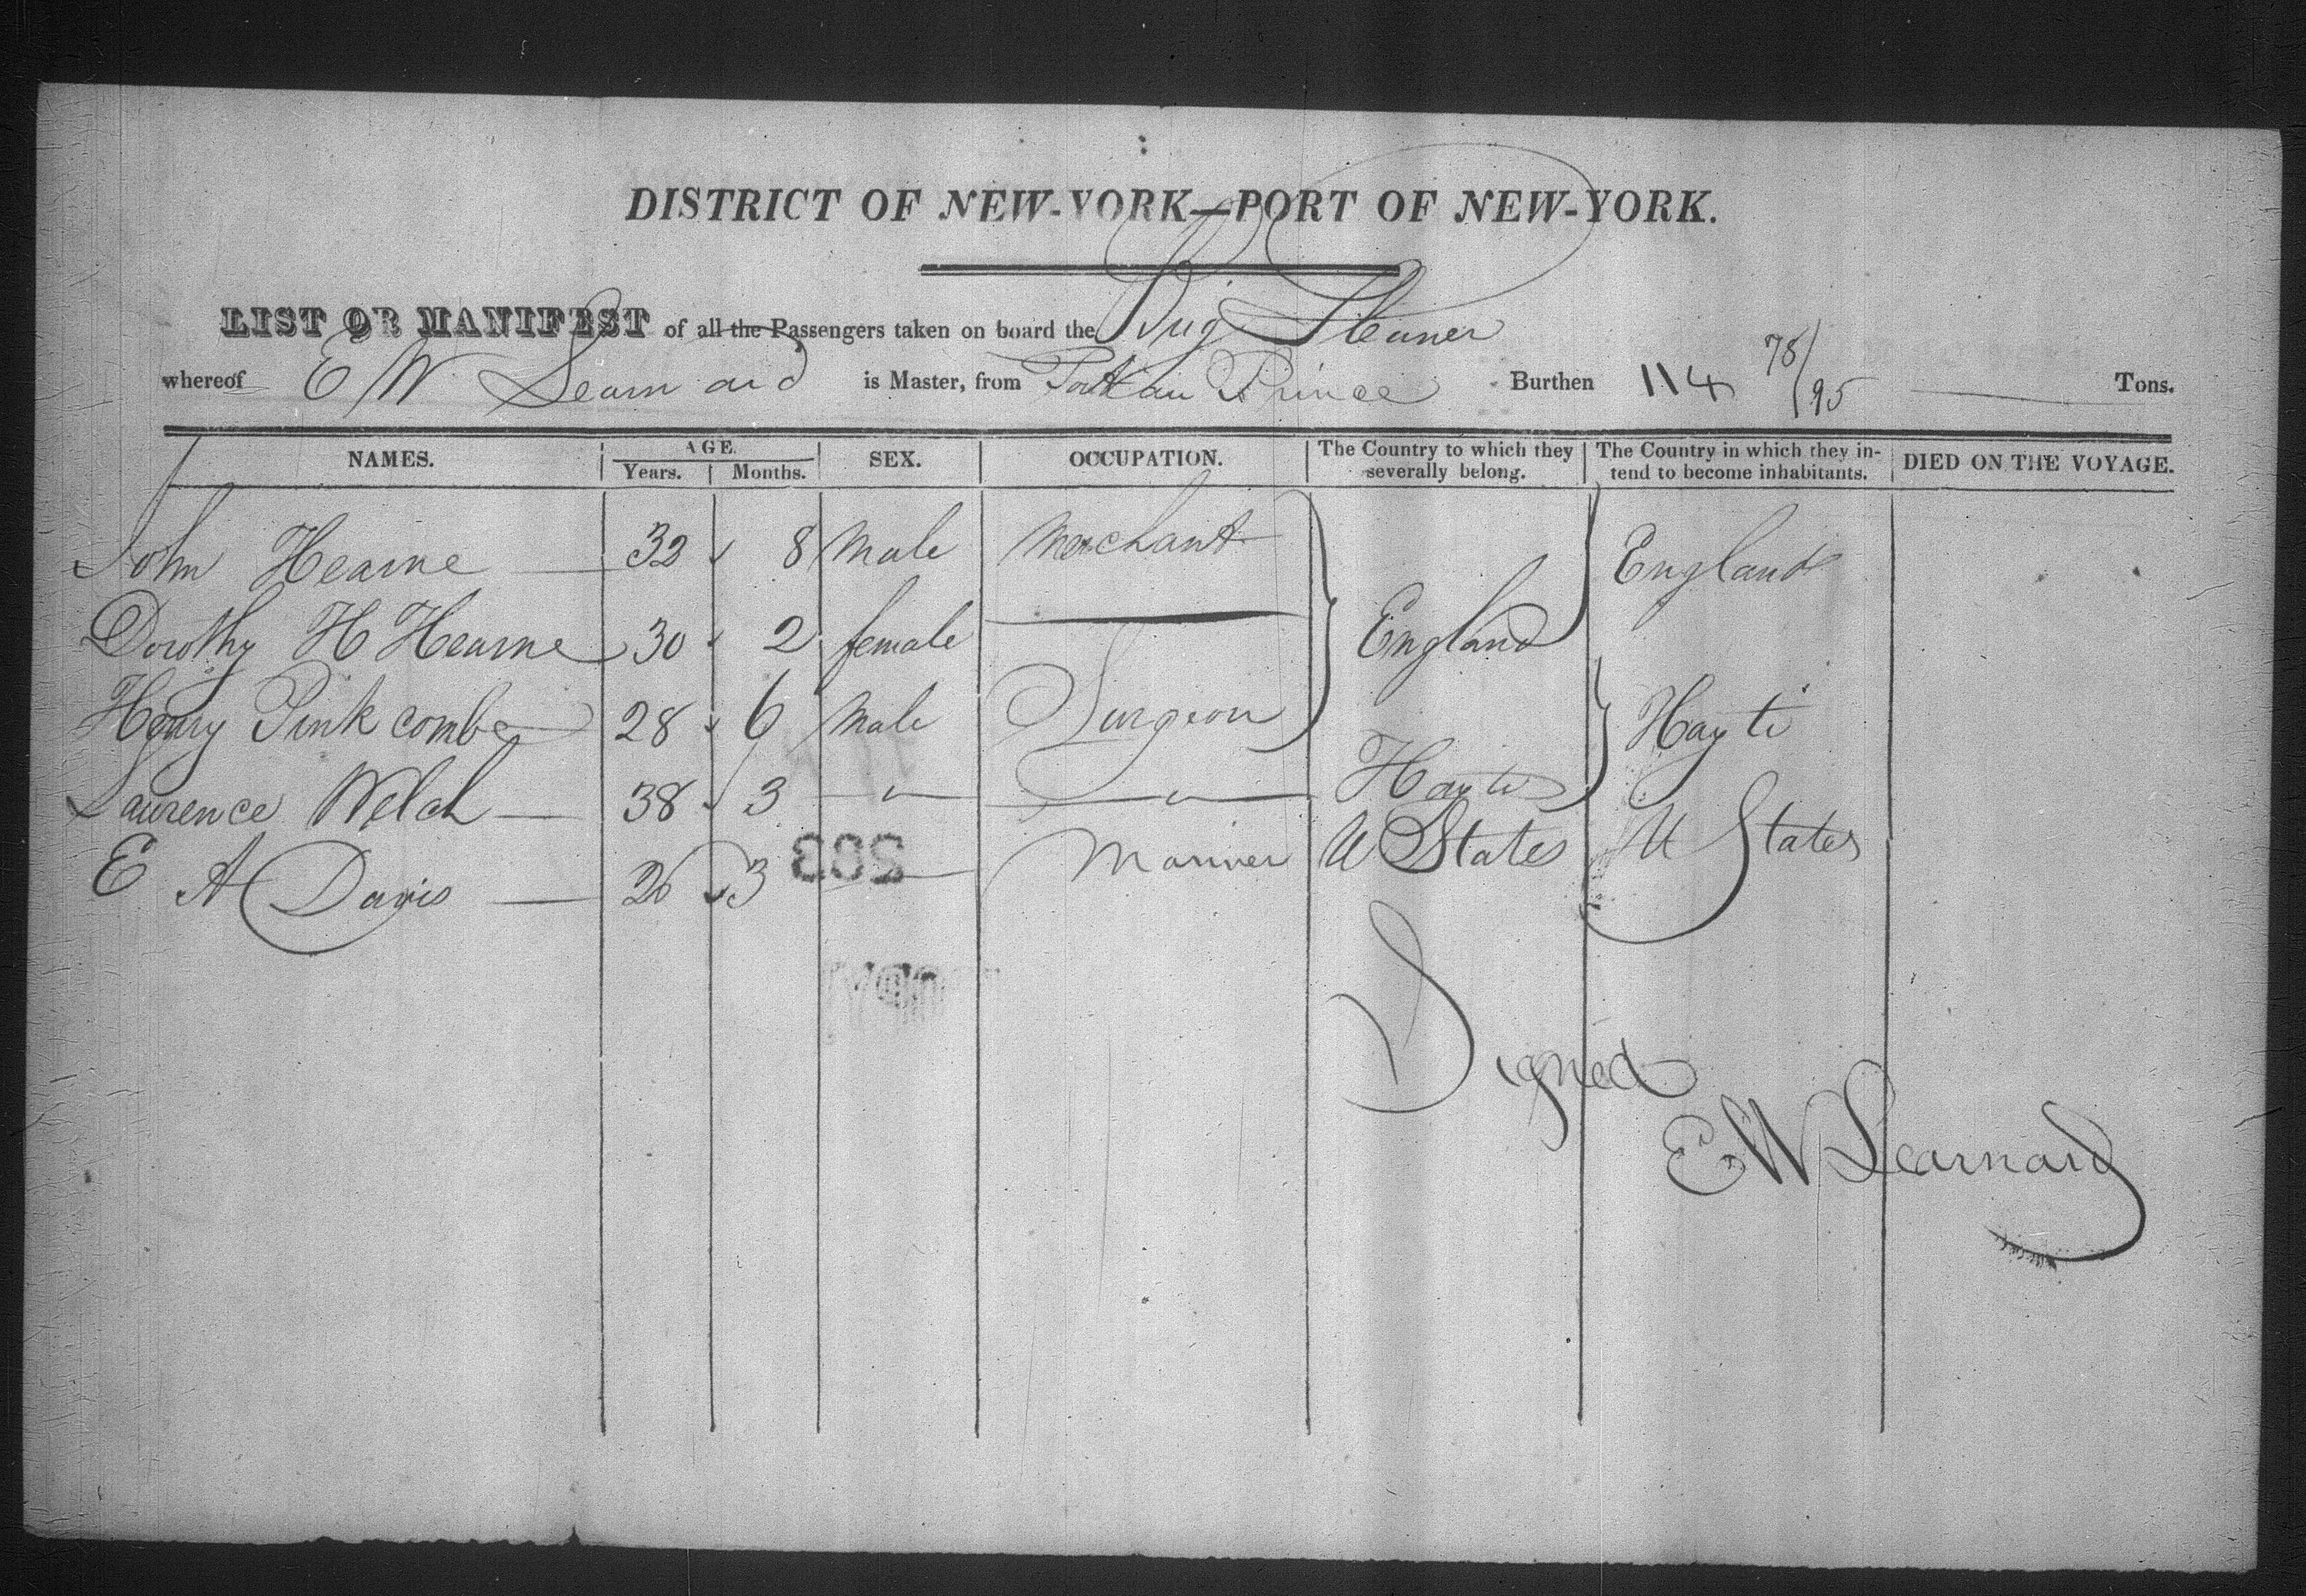 DISTRICT OF NEW-YORK—PORT OF NEW-YORK.
LIST OR MANIFEST of all the Passengers taken on board the Brig
whereof E W Learnard is Master, from Port au Prince Burthen 114 78/95 Tons.
NAMES. AGE. SEX. OCCUPATION. The Country to which they severally belong. The Country in which they intend to become inhabitants. DIED ON THE VOYAGE.
Years. Months.
John Hearne 32 8 Male Merchant England
Dorothy H Hearne 30 2 female England
Henry Pinkcombe 28 6 Male Surgeon Hayti
Laurence Welch 38 3 " " Hayti
E A Davis 26 3 Mariner U States U States
203
Signed
E W Learnard